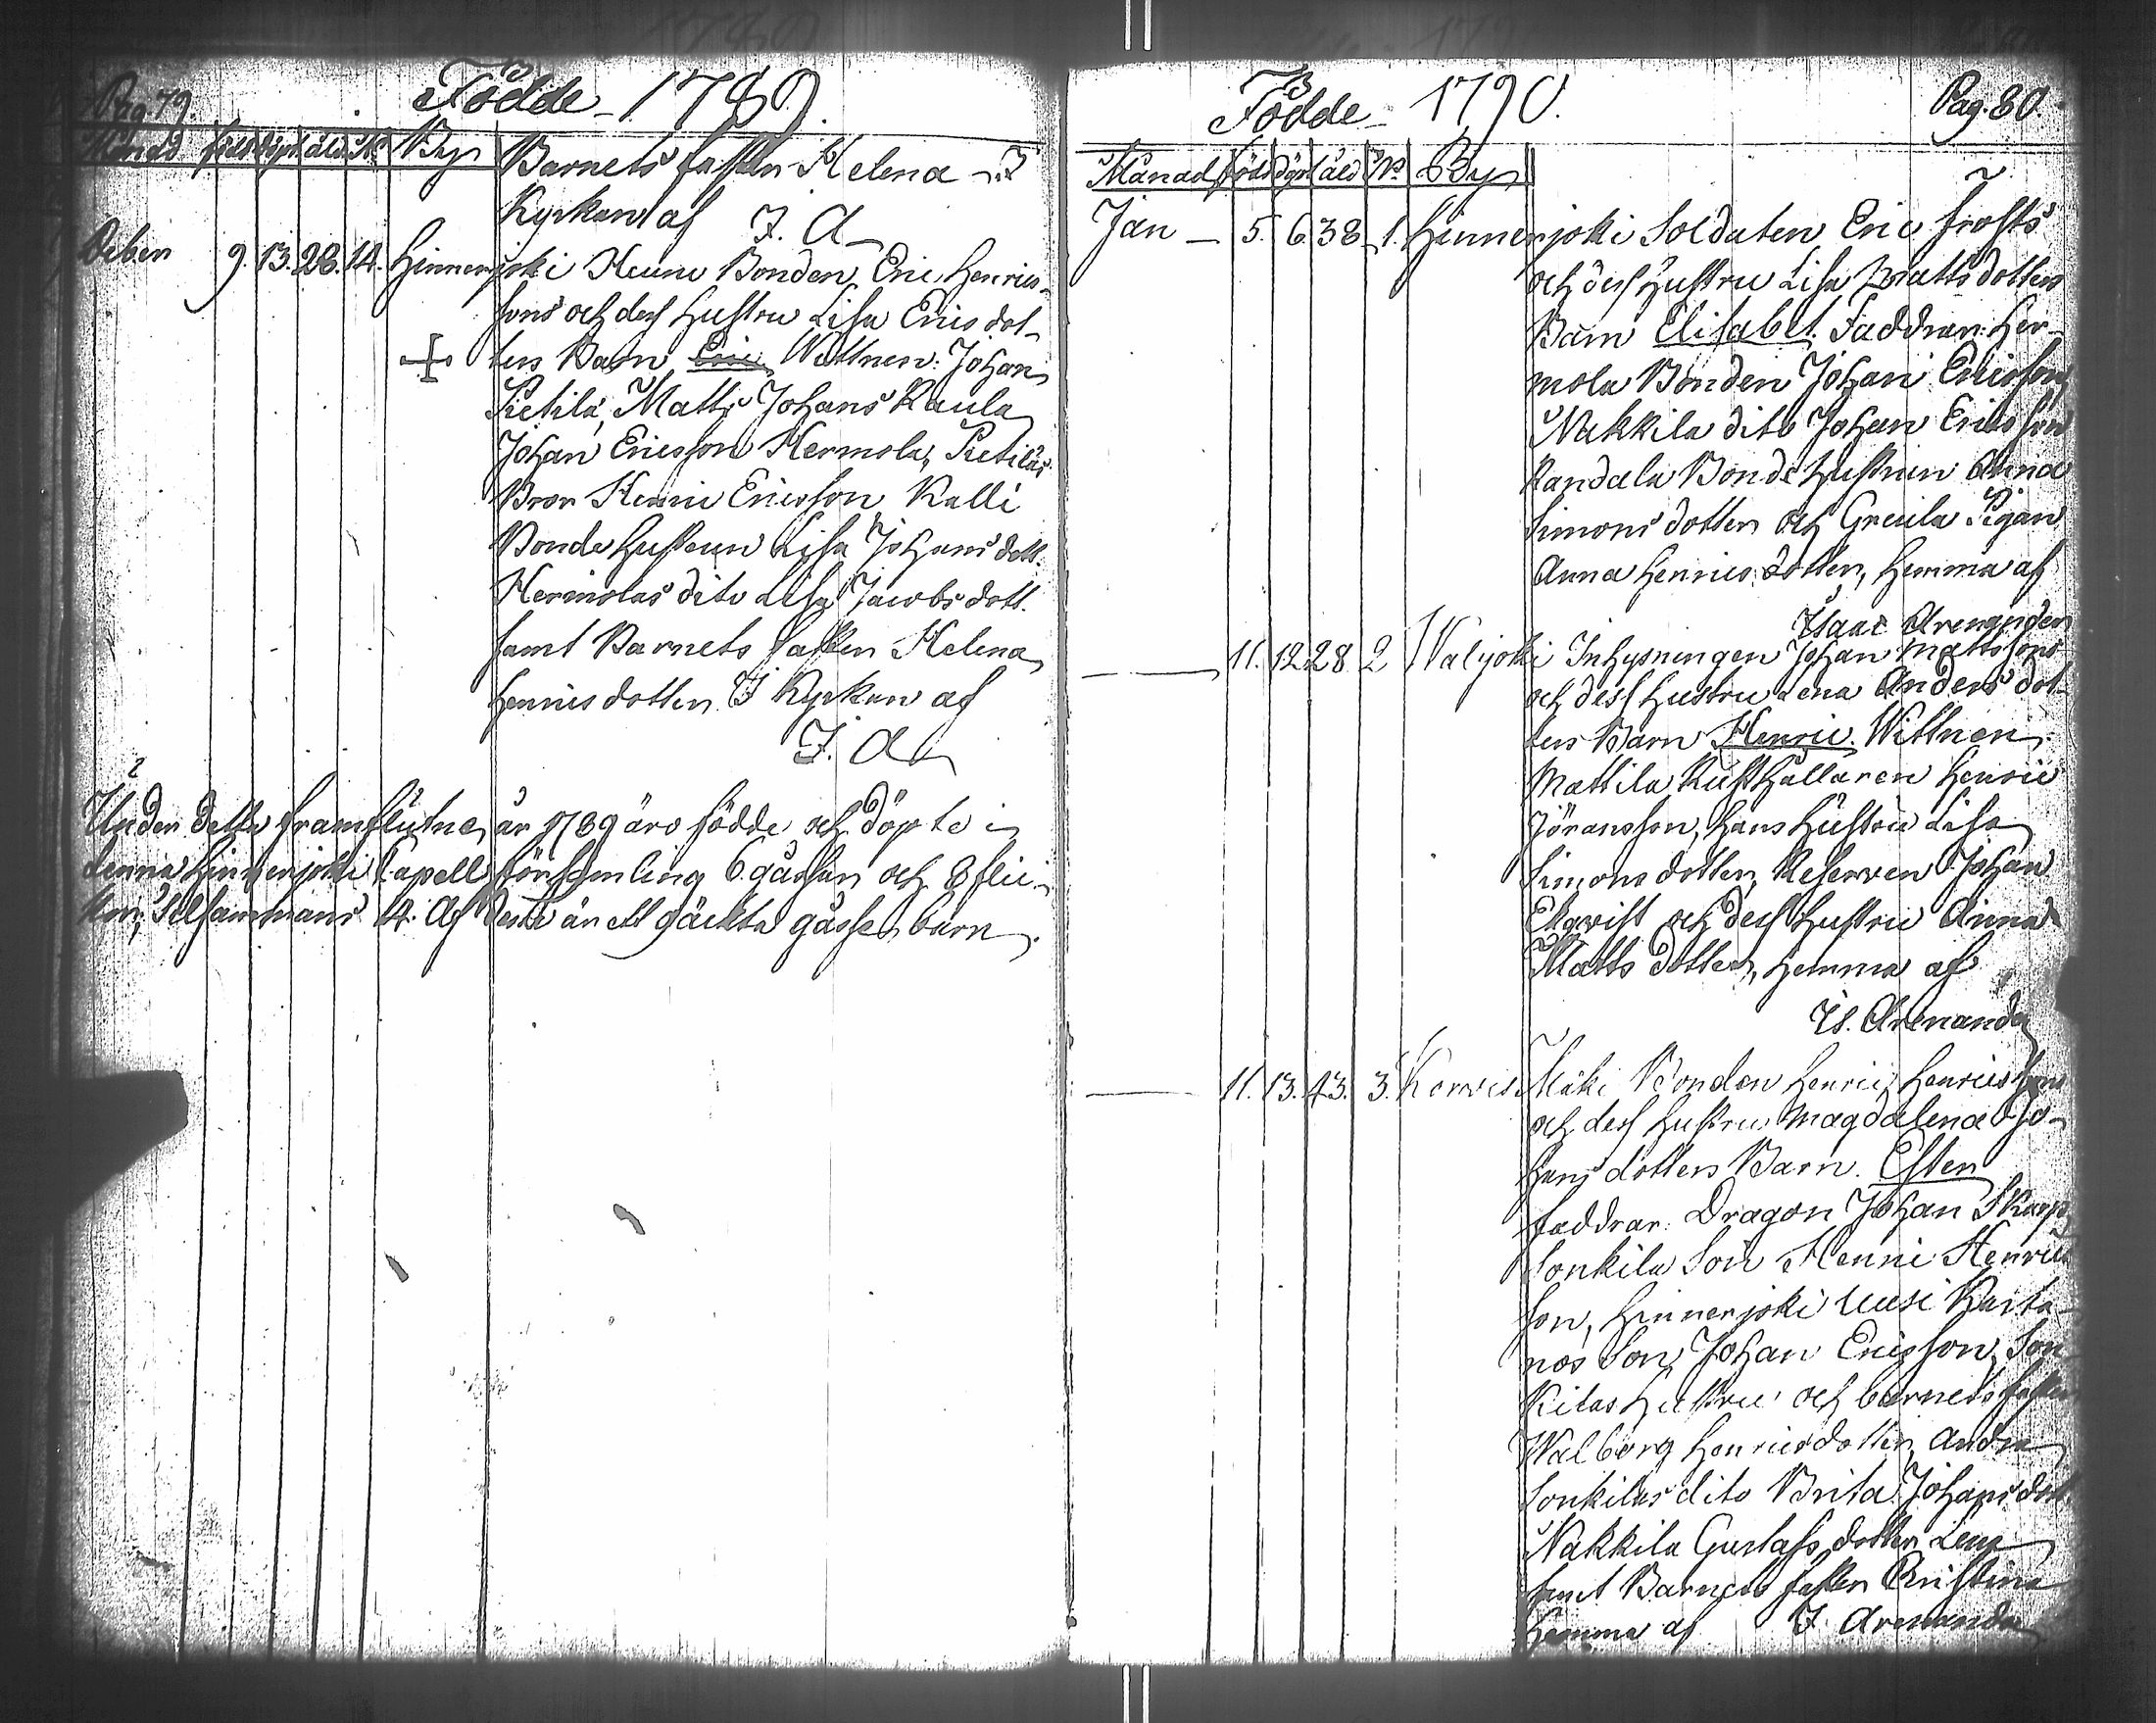 Pag. 79.
Födde - 1789.
Månad född döpt åld. N. By
Barnets faster Helena - I
Kyrkan af I. A
Deben 9. 13. 28. 14. Hinnerjoki Heinu Bonden Eric Henrics
sons och dess Hustru Lisa Erics dot-
ters Barn Eric Wittnen: Johan
Pietilä, Matts Johans Kaula
Johan Ericsson Hermola, Pietilas
Bror Henric Ericsson Kalli
Bonde hustrun Lisa Johans dott.
Hermolas dito Lisa Jacobs dott.
samt Barnets faster Helena
Henrics dotter I Kyrkan af
I. A
Under detta framflutne år 1789 äro födde och döpte i
denna Hinnerjoki Capell församling 6 gåssar och 8 flic-
kor, tilsammans 14. Af desse är ett oäckta gåsse barn.
Födde - 1790.
Pag. 80.
Månad född döpt åld No. By
Jan - 5. 6 38 1. Hinnerjoki Soldaten Eric Frosts
och dess Hustru Lisa Matts dotters
Barn Elisabet. Faddrar: Her-
mola Bonden Johan Ericsson,
Nakkila dito Johan Ericsson
Randala Bonde hustrun Anna
Simons dotter och Greula Pigan
Anna Henrics dotter, Hemma af
Isaac Arenander
11. 12. 28 2 Walijoki Inhysningen Johan Mattssons
och dess Hustru Lena Anders dot-
ters Barn Henric. Wittnen
Mattila Rusthållaren Henric
Jöransson, hans Hustru Lisa
Simons dotter, Reserven Johan
Ekqvist och dess Hustru Anna
Matts dotter, hemma af
Is. Arenander
11. 13. 43. 3. Korvis Mäki Bonden Henric Henricssons
och dess Hustrus Magdalena Jo-
hans dotters Barn. Ester
faddrar: Dragon Johan Skarp
Sonkila Son Henric Henrics
son, Hinnerjoki Uusi Karta-
nos Son Johan Ericsson, Son
kilas Hustru och barnets faster
Walborg Henrics dotter, Andra
Sonkilas dito Brita Johans dott.
Nakkila Gustafs dotter Lena
samt Barnets faster Christina
Hemma af I Arenander